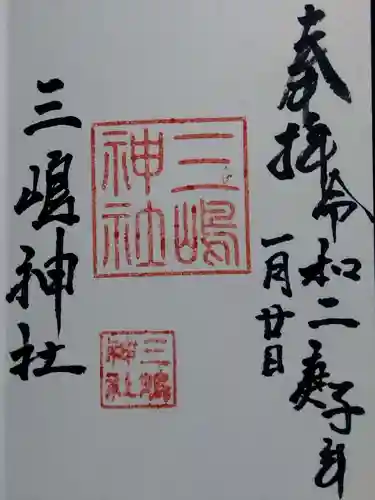 奉拝
令和二庚子年
一月廿日
三嶋神社
三嶋神社
三嶋神社